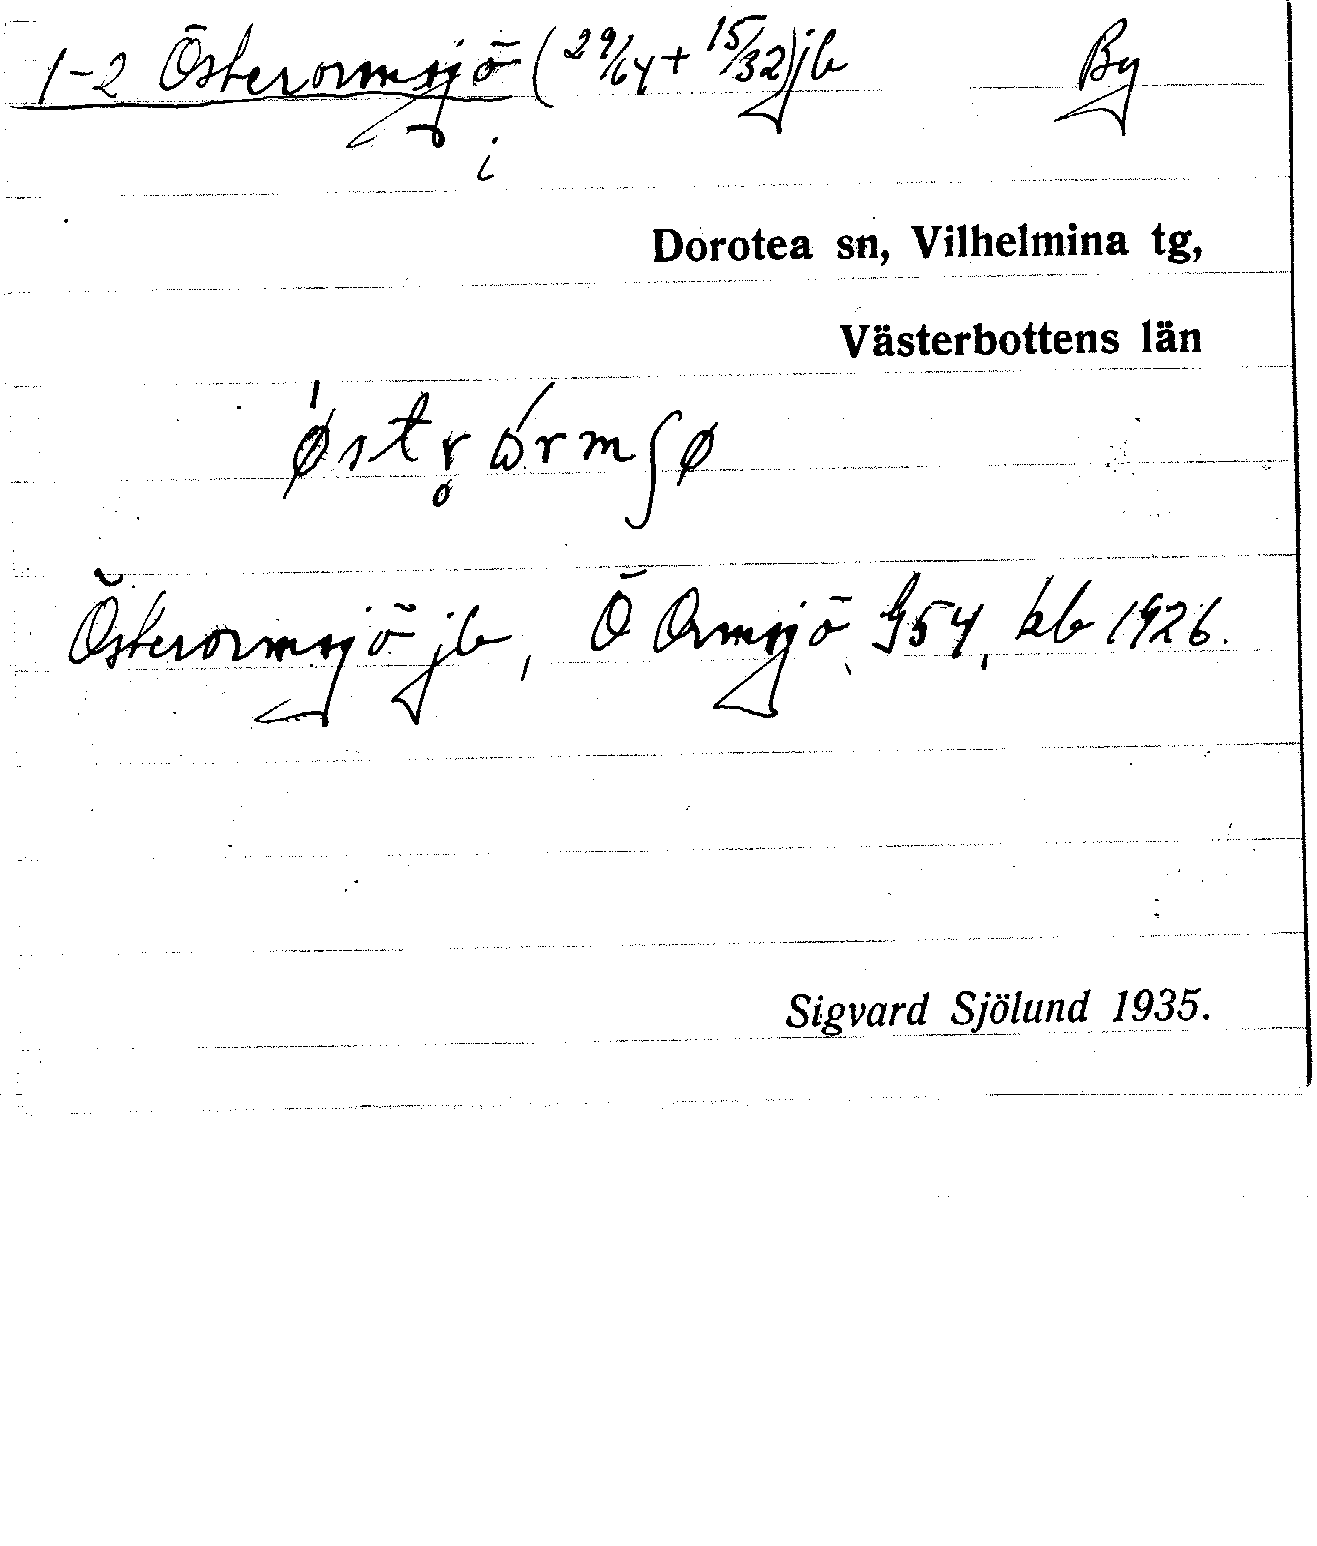 1-2 Österormsjö (29/64 + 15/32) jb By
i
Dorotea sn, Vilhelmina tg,
Västerbottens län
Österormsjö jb, Ö Ormsjö G54, kb 1926.
Sigvard Sjölund 1935.